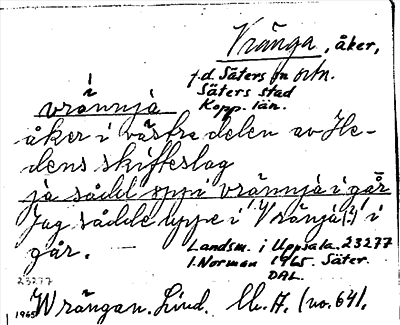 Vränga, åker,
f.d. Säters sn
Säters stad
Kopp. län.
vrännjá
åker i västra delen av He-
dens skifteslag
ja sådd uppi vrännjá i går
Jag sådde uppe i "Vränjá(?)" i
går. —
Landsm. i Uppsala. 23277
I. Norman 1965. Säter.
DAL.
23277
1965
Wrängan. Lind. Ll. A. (no. 64).